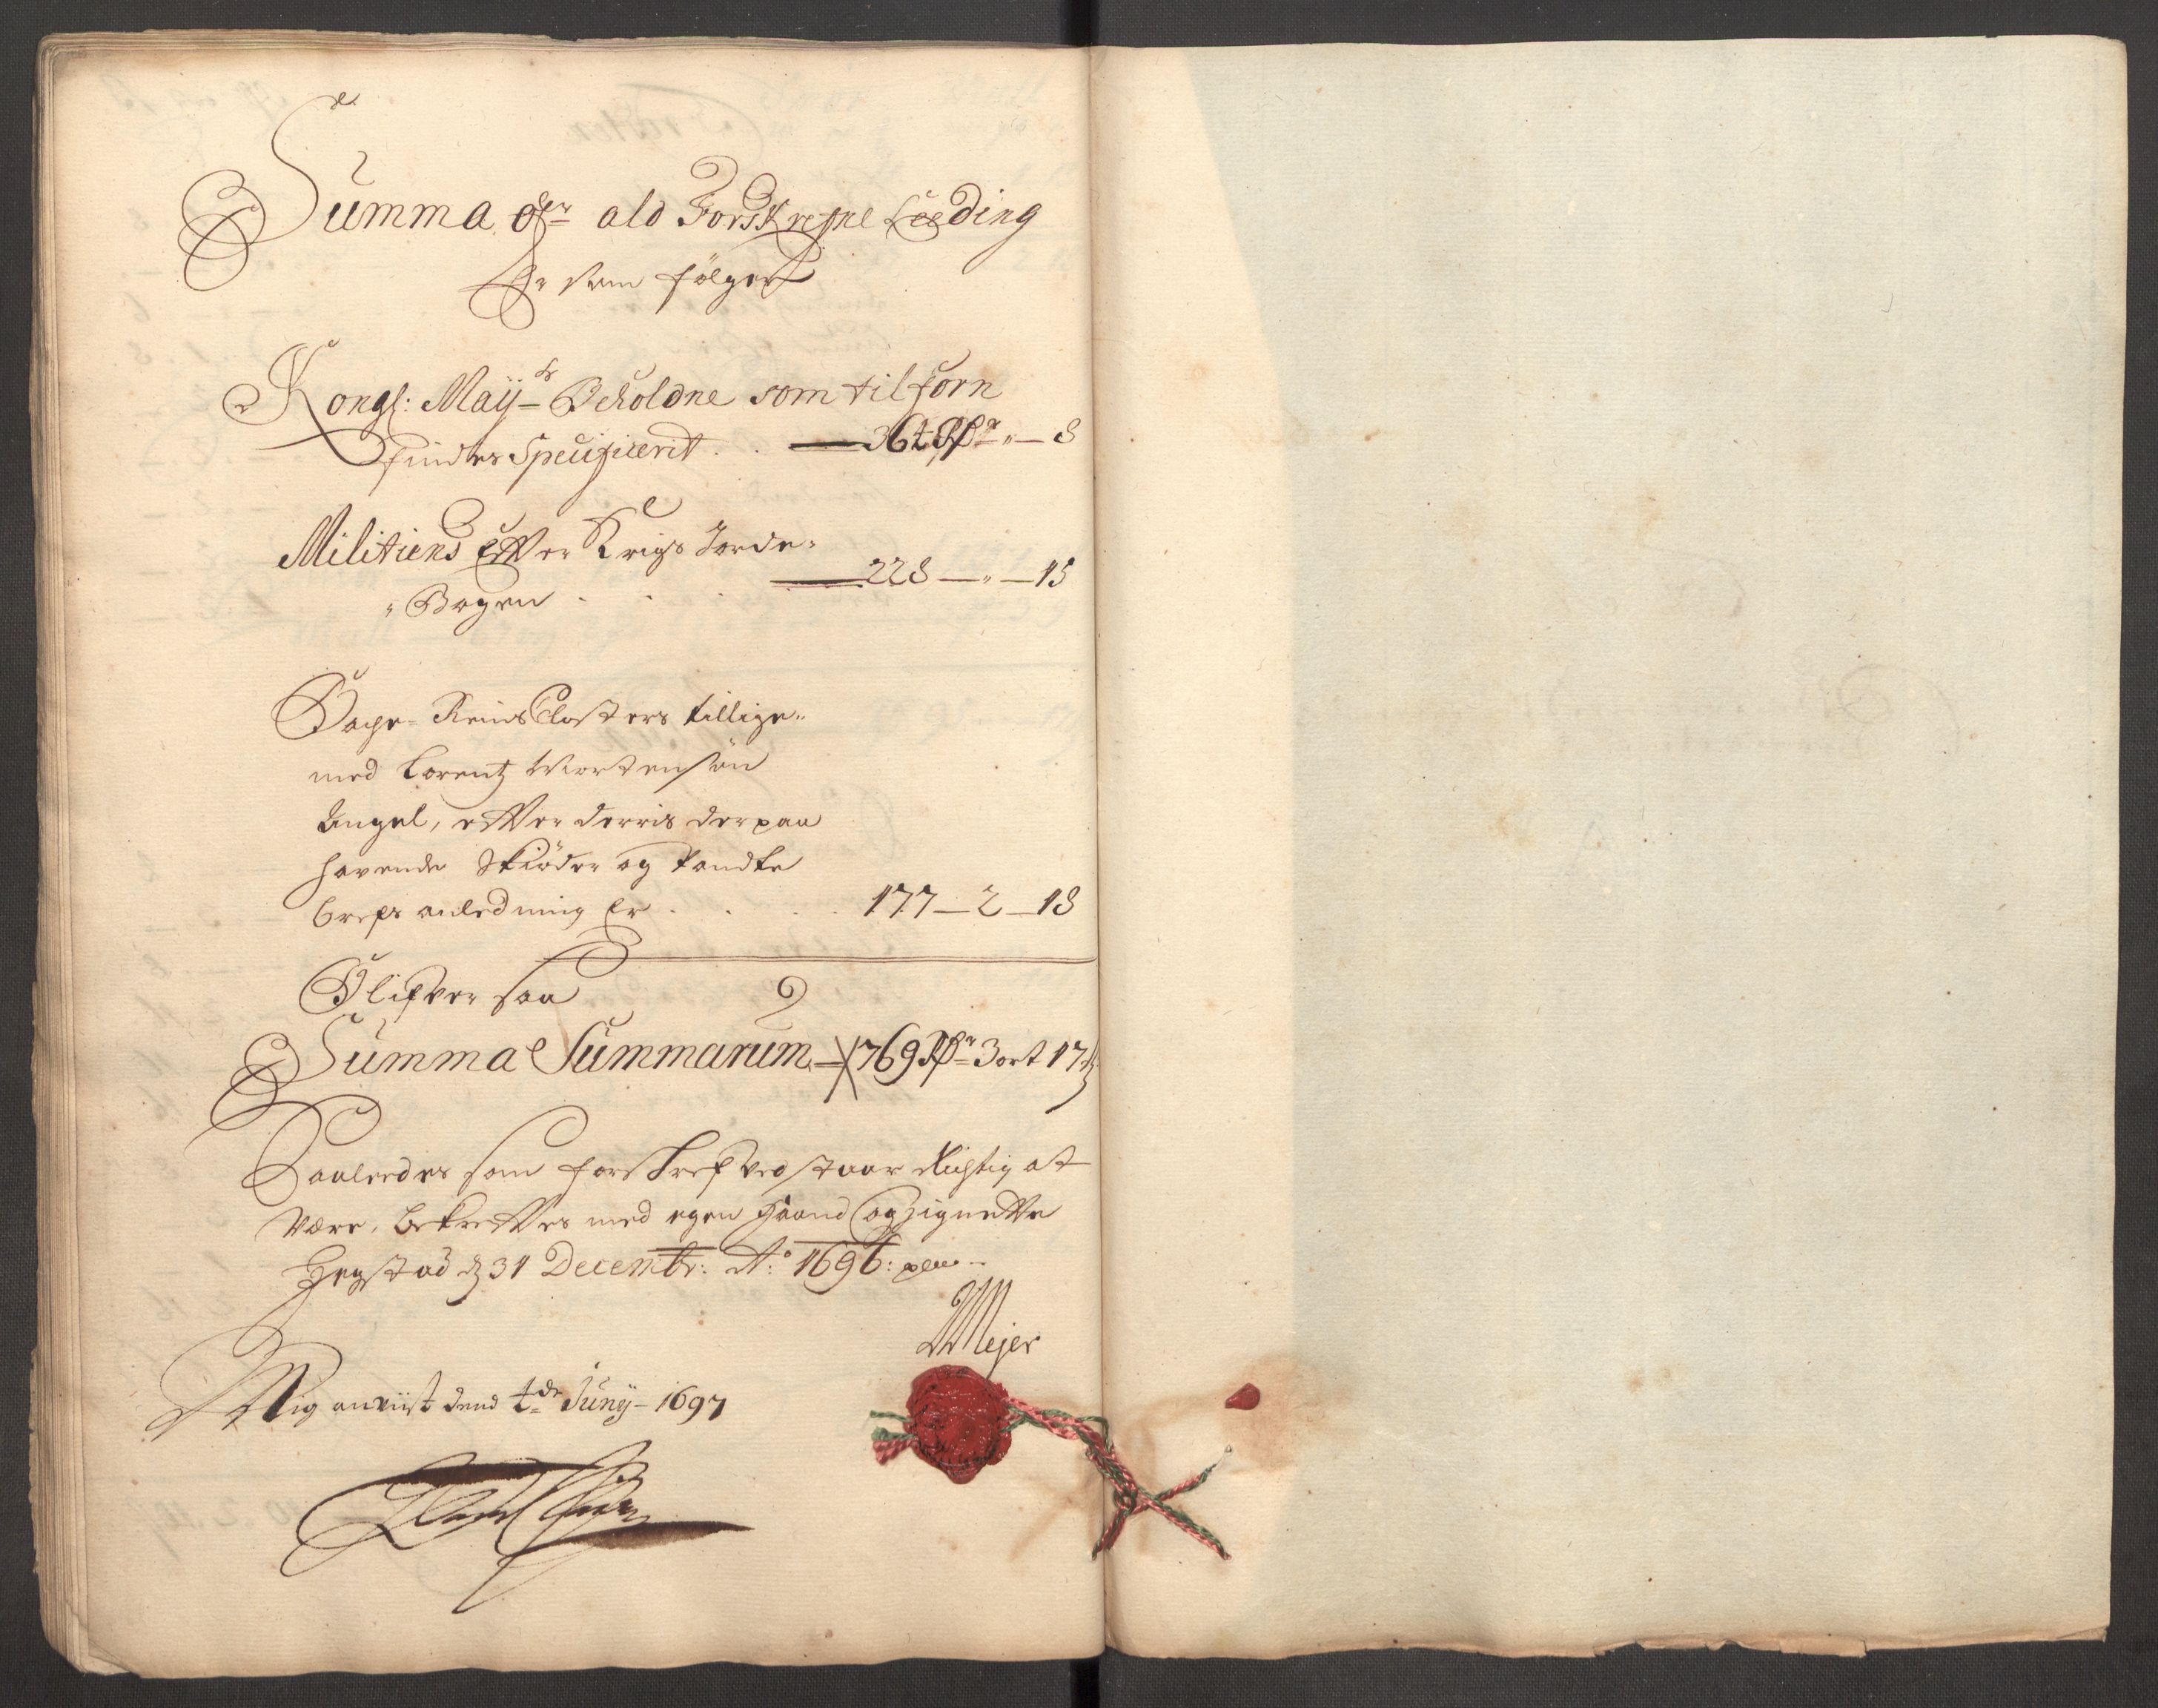 Summa ofr ald Forskrefne Leeding
Er som følger
Kongl: Maij ts Beholdne som tilforn
findes Specificerit . . 364 Rdr " 8
Militiens effter Krigs Jorde-
"Bogen . . . 228 " 15
Bage-Reins Closters tillige-
med Lorentz Mortensøn
Angel, effter derris derpaa
havende Skiøder og Pandte
brefs anledning Er . . . 177 2 18
Blifver saa
Summa Summarum 769 Rdr 3 ort 17 s
Saaleedes som forskrefved staar Rigtig at
være, bekreffter med egen Haand og Zignette
Hegstad d 31 Decembr: Ao: 1696:
Mejer
Mig anviist dend t de Junij 1697